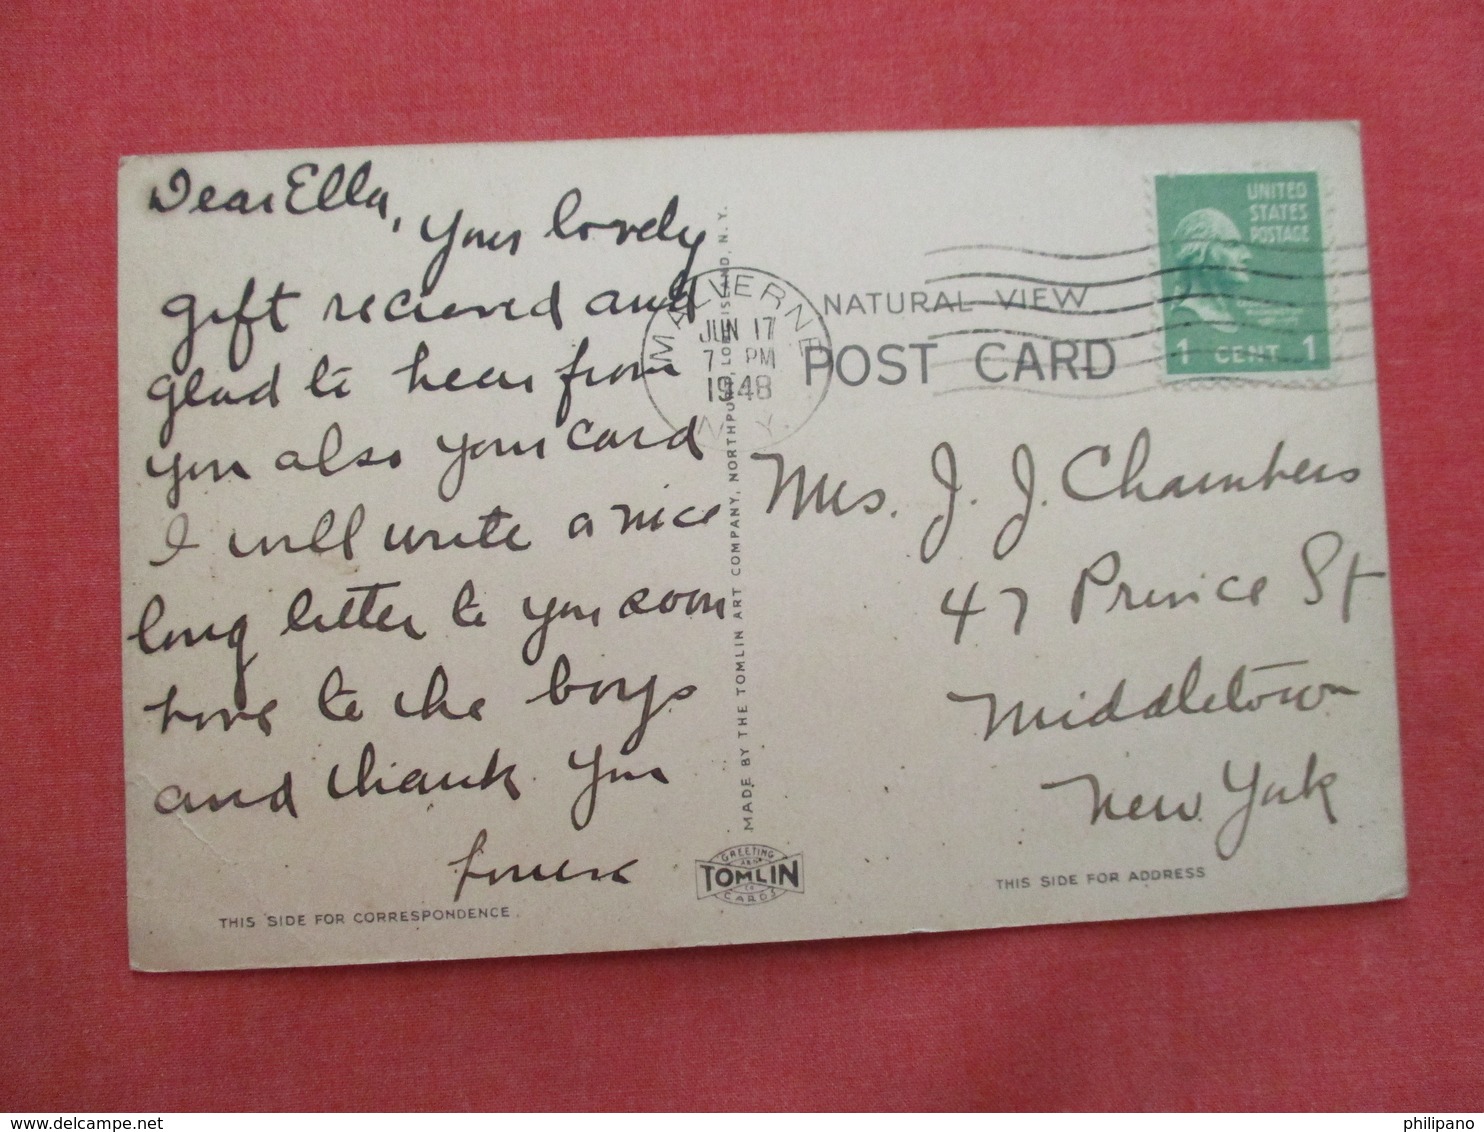 Dear Ella,
Your lovely
gift recieved and
glad to hear from
you also your card
I will write a nice
long letter to you soon
love to the boys
and thank you
THIS SIDE FOR CORRESPONDENCE
MADE BY THE TOMLIN ART COMPANY, NORTHPORT, LONG ISLAND, N. Y.
GREETING
AND
TOMLIN
CARDS
MALVERNE
JUN 17
7 PM
1948
N.Y.
NATURAL VIEW
POST CARD
UNITED
STATES
POSTAGE
1 CENT 1
Mrs. J. J. Chambers
47 Prince St
Middletown
New York
THIS SIDE FOR ADDRESS
delcampe.net
philipano